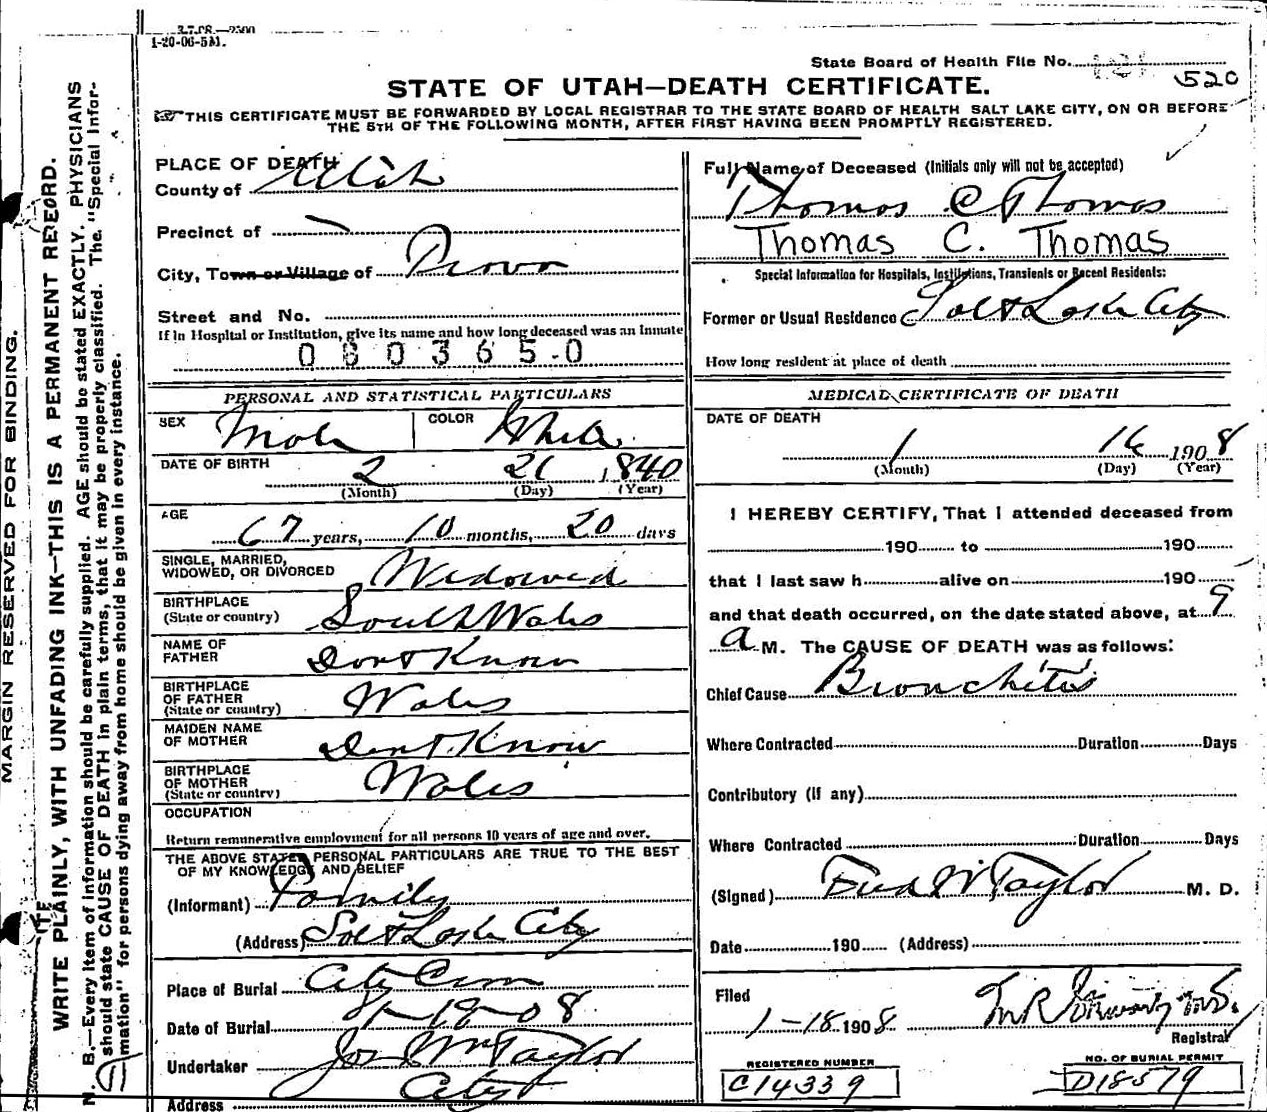 1-20-06-5M.
State Board of Health File No. 520
STATE OF UTAH—DEATH CERTIFICATE.
THIS CERTIFICATE MUST BE FORWARDED BY LOCAL REGISTRAR TO THE STATE BOARD OF HEALTH SALT LAKE CITY, ON OR BEFORE
THE 5TH OF THE FOLLOWING MONTH, AFTER FIRST HAVING BEEN PROMPTLY REGISTERED.
MARGIN RESERVED FOR BINDING.
WRITE PLAINLY, WITH UNFADING INK—THIS IS A PERMANENT RECORD.
N. B.—Every item of information should be carefully supplied. AGE should be stated EXACTLY. PHYSICIANS
should state CAUSE OF DEATH in plain terms, that it may be properly classified. The "Special Infor-
mation" for persons dying away from home should be given in every instance.
PLACE OF DEATH
County of Utah
Precinct of
City, Town or Village of Provo
Street and No.
If in Hospital or Institution, give its name and how long deceased was an Inmate
0603650
PERSONAL AND STATISTICAL PARTICULARS
SEX Male COLOR White
DATE OF BIRTH 2 26 1840
(Month) (Day) (Year)
AGE
67 years, 10 months, 20 days
SINGLE, MARRIED,
WIDOWED, OR DIVORCED Widowed
BIRTHPLACE
(State or country) South Wales
NAME OF
FATHER Dont Know
BIRTHPLACE
OF FATHER
(State or country) Wales
MAIDEN NAME
OF MOTHER Dont Know
BIRTHPLACE
OF MOTHER
(State or country) Wales
OCCUPATION
Return remunerative employment for all persons 10 years of age and over.
THE ABOVE STATED PERSONAL PARTICULARS ARE TRUE TO THE BEST
OF MY KNOWLEDGE AND BELIEF
(Informant) Family
(Address) Salt Lake City
Place of Burial City Cem
Date of Burial 1-19-08
Undertaker Jos Wm Taylor
Address City
Full Name of Deceased (Initials only will not be accepted)
Thomas C Thomas
Thomas C. Thomas
Special Information for Hospitals, Institutions, Transients or Recent Residents:
Former or Usual Residence Salt Lake City
How long resident at place of death
MEDICAL CERTIFICATE OF DEATH
DATE OF DEATH
1 16 1908
(Month) (Day) (Year)
I HEREBY CERTIFY, That I attended deceased from
190 to 190
that I last saw h alive on 190
and that death occurred, on the date stated above, at 9
a M. The CAUSE OF DEATH was as follows:
Chief Cause Bronchitis
Where Contracted Duration Days
Contributory (if any)
Where Contracted Duration Days
(Signed) Fred W Taylor M. D.
Date 190 (Address)
Filed
1-18 1908
Registrar
REGISTERED NUMBER
C14339
NO. OF BURIAL PERMIT
D18579